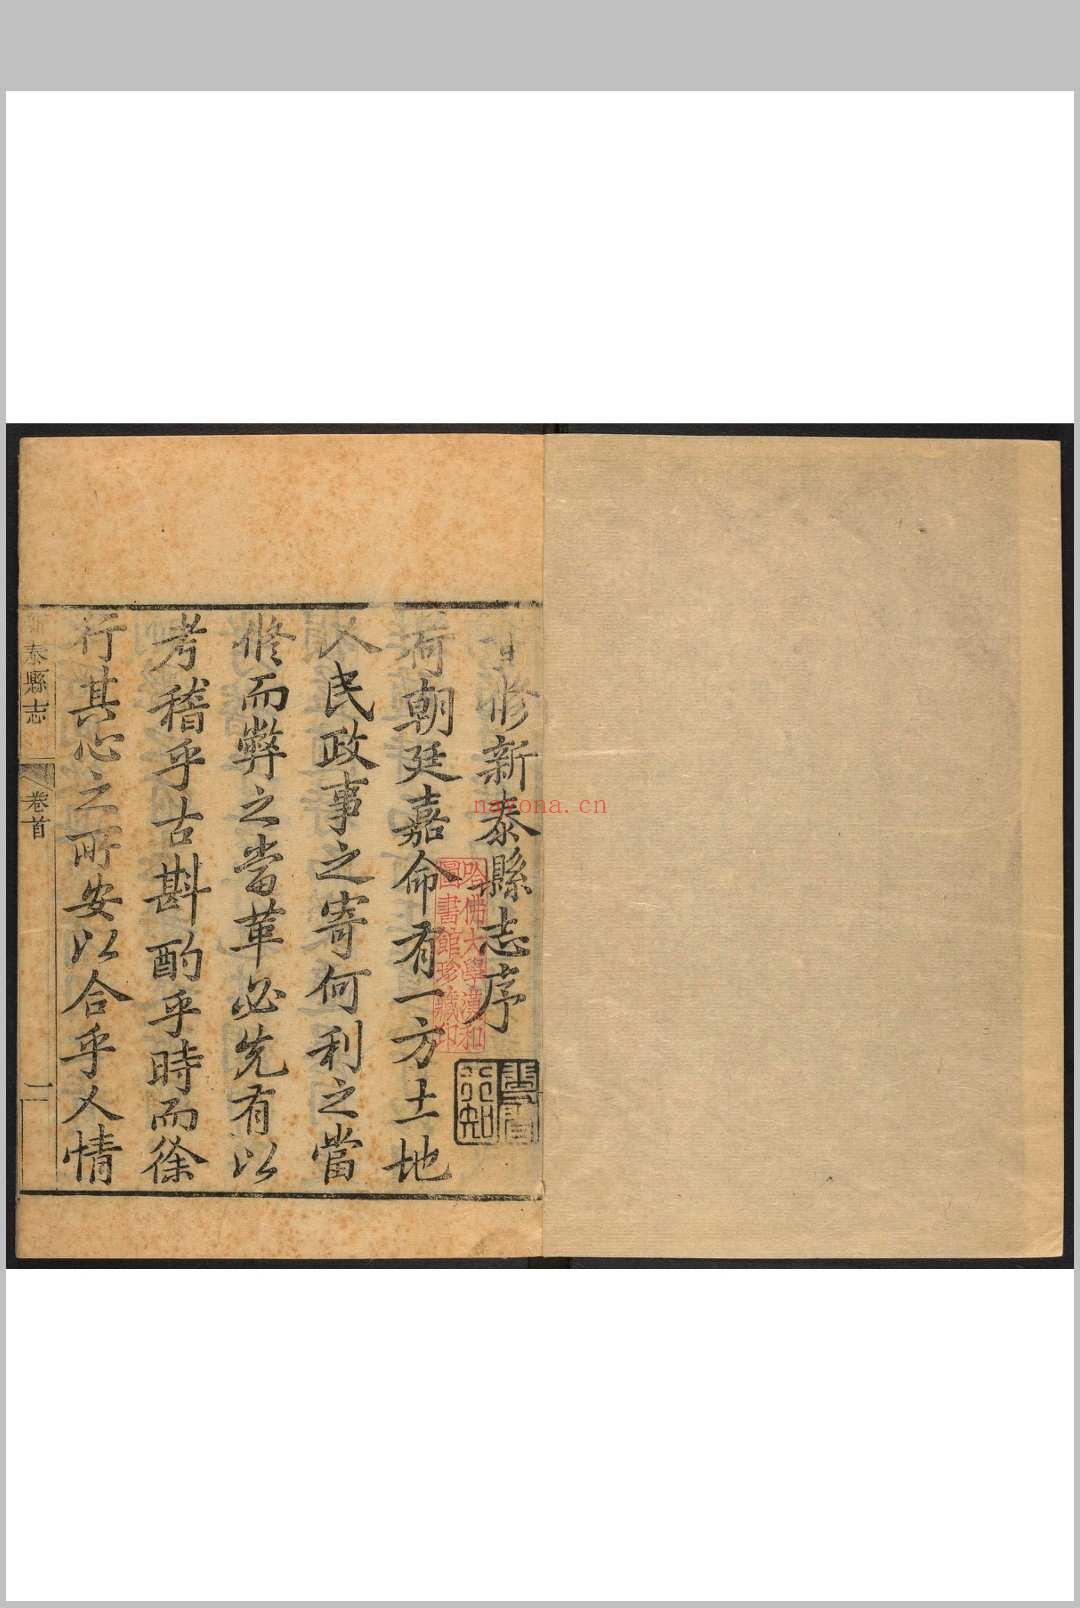 修新泰縣志序
荷朝廷嘉命有一方土地
人民政事之寄何利之當
修而弊之當革必先有以
考稽乎古斟酌乎時而徐
行其心之所安以合乎人情
泰縣志
卷首
一
哈佛大學漢和
圖書館珍藏印
nayona.cn